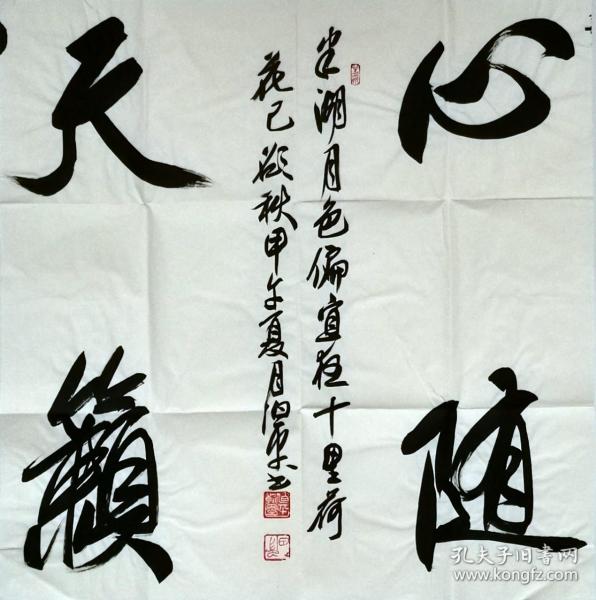 心随
半湖月色偏宜夜十里荷
花已欲秋甲午夏月
天籟
孔夫子旧书网
www.kongfz.com